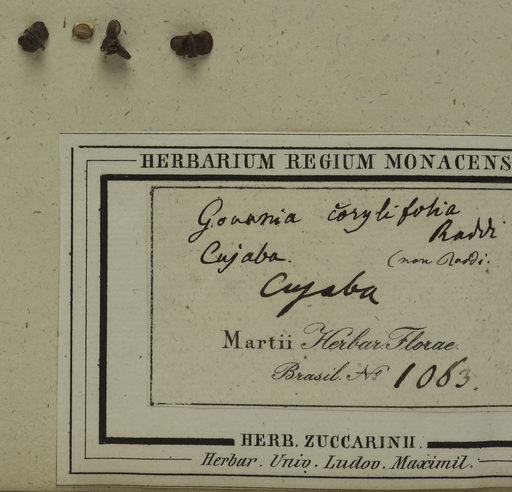 HERBARIUM REGIUM MONACENS
Gouania corylifolia
Raddi
Cujaba. (non Raddi.
Cujaba
Martii Herbar. Florae.
Brasil. No 1063.
HERB. ZUCCARINII.
Herbar. Univ. Ludov. Maximil.